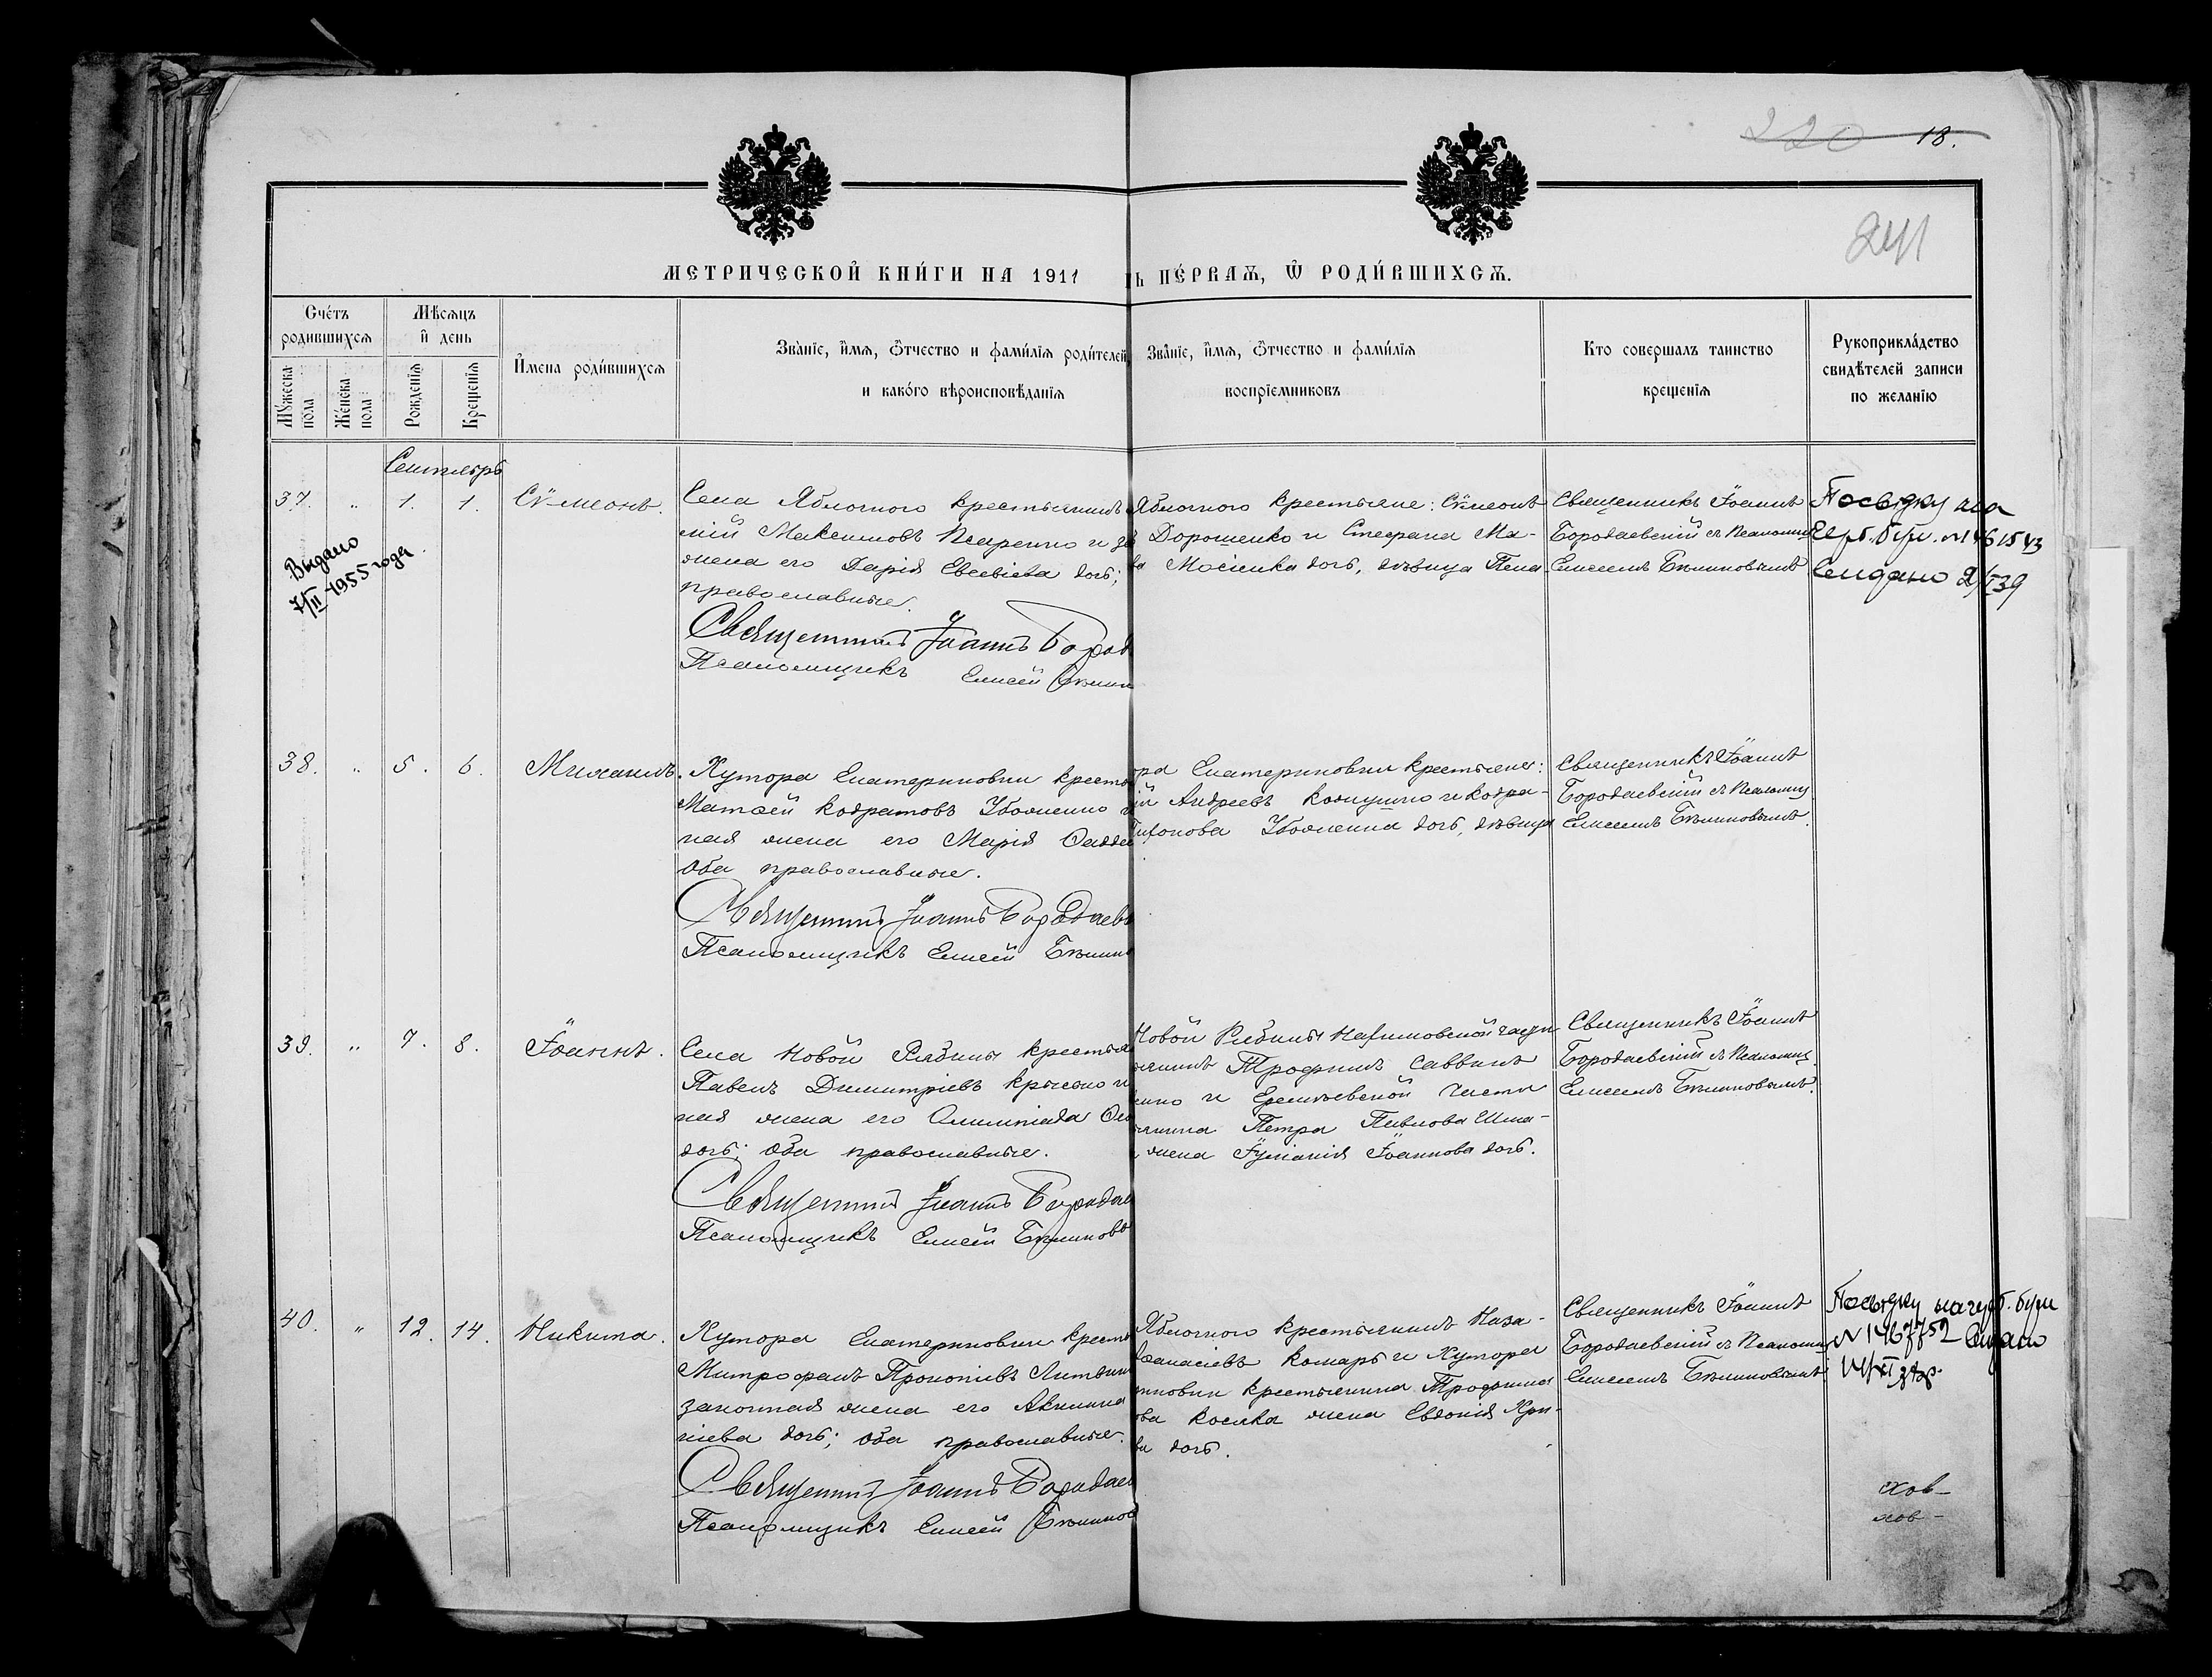 220 18.
241
МЕТРИЧЕСКОЙ КНИ́ГИ НА 1911
ть ПЕ́РВАѦ, Ѿ РОДИ́ВШИХСѦ.
Сче́тъ родившихсѧ
Мꙋ́жеска пола
Же́нска пола
Мѣ́сѧцъ и҆ день
Рожденїѧ
Крещенїѧ
И҆мена роди́вшихсѧ
Зва́нїе, и҆́мѧ, ѻ҆́тчество и фами́лїѧ роди́телей,
и како́го вѣроисповѣ́данїѧ
Зва́нїе, и҆́мѧ, ѻ҆́тчество и фами́лїѧ
воспрїе́мниковъ
Кто соверша́лъ таинство
креще́нїѧ
Рукоприкла́дство
свидѣ́телей записи
по жела́нїю
Сентябрь
37. " 1. 1. Сѵмеонъ.
Выдано
7/II-1955 года
Села Яблочнаго крестьянинъ
мій Максимовъ Писаренко и за
жена его Дарія Евсевіева дочь;
православные.
Священникъ Іоаннъ Бород
Псаломщикъ Елисей Бѣлин
Яблочнаго крестьяне: Сѵмеонъ
Дорошенко и Стефана Ма-
ва Мосіенка дочь, дѣвица
Священникъ Іоаннъ
Бородаевскій съ Псаломщ
Елисеемъ Бѣлиновымъ
Посвідку на
герб. бум. №1461543
видано 2/I 39
38. " 5. 6. Михаилъ.
Хутора Екатериновки кресть
Матѳей Кодратовъ Убоженко и
ная жена его Марія Ѳадде
оба православные.
Священникъ Іоаннъ Бородаевс
Псаломщикъ Елисей Бѣлин
ра Екатериновки крестьяне:
ій Андреевъ и Кодра-
Тихонова Убоженка дочь, дѣвица
Священникъ Іоаннъ
Бородаевскій съ Псаломщ.
Елисеемъ Бѣлиновымъ.
39. " 7. 8. Іоаннъ.
Села Новой Рябины крестья
Павелъ Димитріевъ и
ная жена его Олимпіада
дочь; оба православные.
Священникъ Іоаннъ Бородае
Псаломщикъ Елисей Бѣлиновъ
Новой Рябины части
янинъ Трофимъ Саввинъ
енко и Еремѣевской части
янина Петра Павлова Шма-
жена Іуліанія Іоаннова дочь.
Священникъ Іоаннъ
Бородаевскій съ Псаломщ.
Елисеемъ Бѣлиновымъ.
40. " 12. 14. Никита.
Хутора Екатериновки кресть
Митрофанъ Прокопіевъ Литвин
законная жена его Акилина
ліева дочь; оба православные.
Священникъ Іоаннъ Бородаев
Псаломщикъ Елисей Бѣлинов
Яблочнаго крестьянинъ Наза-
Аѳанасіевъ Комаръ и Хутора
риновки крестьянина Трофима
ова Косяка жена Евдокія Хри-
ва дочь.
Священникъ Іоаннъ
Бородаевскій съ Псаломщ
Елисеемъ Бѣлиновымъ
Посвідку на герб. бум
№1467752 видано